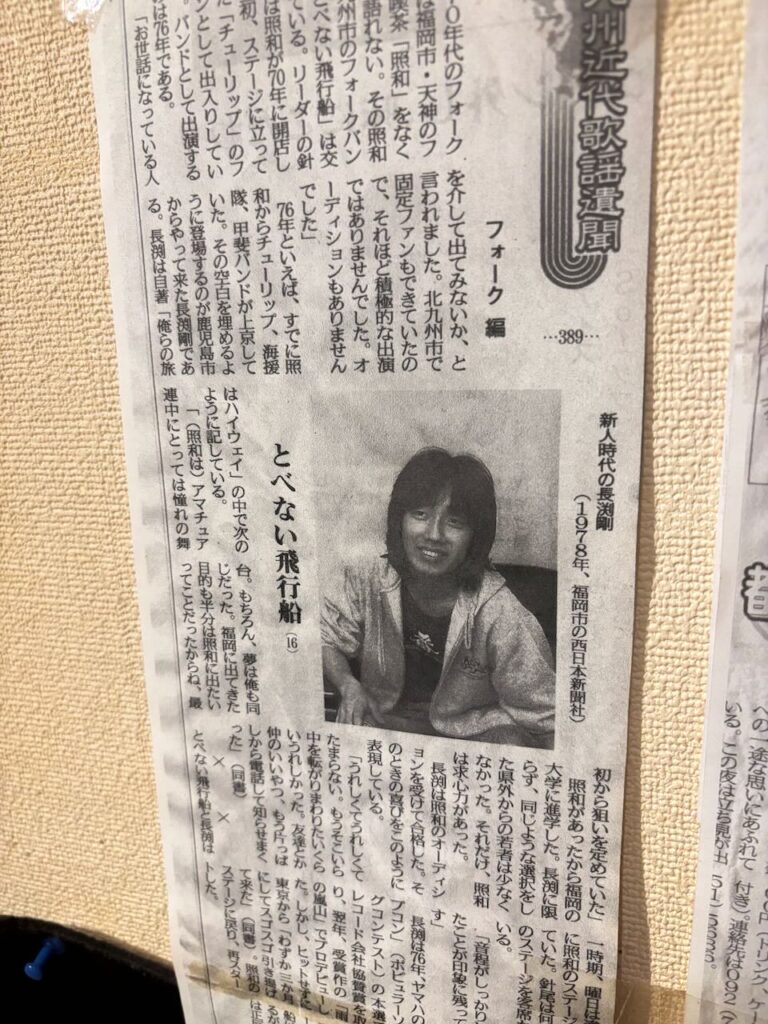 九州近代歌謡遺聞
フォーク編
…389…
０年代のフォーク
は福岡市・天神のフ
喫茶「照和」をなく
語れない。その照和
とべない飛行船」は交
九州市のフォークバン
ている。リーダーの針
は照和が70年に開店し
初、ステージに立って
た「チューリップ」のフ
ンとして出入りしてい
。バンドとして出演する
は76年である。
「お世話になっている人
を介して出てみないか、と
言われました。北九州市で
固定ファンもできていたの
で、それほど積極的な出演
ではありませんでした。オ
ーディションもありません
でした」
76年といえば、すでに照
和からチューリップ、海援
隊、甲斐バンドが上京して
いた。その空白を埋めるよ
うに登場するのが鹿児島市
からやって来た長渕剛であ
る。長渕は自著「俺らの旅
新人時代の長渕剛
（1978年、福岡市の西日本新聞社）
とべない飛行船 (16)
はハイウェイ」の中で次の
ように記している。
「（照和は）アマチュア
連中にとっては憧れの舞
台。もちろん、夢は俺も同
じだった。福岡に出てきた
目的も半分は照和に出たい
ってことだったからね、最
初から狙いを定めていた」
照和があったから福岡の
大学に進学した。長渕に限
らず、同じような選択をし
た県外からの若者は少なく
なかった。それだけ、照和
は求心力があった。
長渕は照和のオーディシ
ョンを受けて合格した。そ
のときの喜びをこのように
表現している。
「うれしくてうれしくて
たまらない。もうそこいら
中を転がりまわりたいくら
いうれしかった。友達とか
仲のいいやつ、もう片っぱ
しから電話して知らせまく
った」（同書）
× ×
とべない飛行船と長渕は
一時期、曜日は
に照和のステージ
ていた。針尾は何
のステージを客席
いる。
「音程がしっかり
たことが印象に残って
す」
長渕は76年、ヤマハの
プコン」（ポピュラーソ
グコンテスト）の本選
レコード会社協賛賞を取
り、翌年、受賞作の「雨
の嵐山」でプロデビューし
た。しかし、ヒットせずに
東京から「わずか三か月
にしてスゴスゴ引き揚げ
て来た」（同書）。照和の
ステージに戻り、再スター
トした。
への一途な思いにあふれて
いる。この夜は立ち見が出
付き）。連絡先は092（7